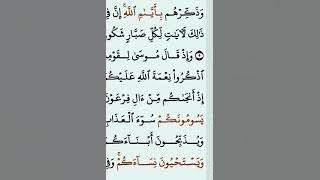 وَذَكِّرْهُم بِأَيَّىٰمِ ٱللَّهِ إِنَّ فِى
ذَٰلِكَ لَـَٔايَـٰتٍ لِّكُلِّ صَبَّارٍ شَكُو
وَإِذْ قَالَ مُوسَىٰ لِقَوْمِ
ٱذْكُرُوا۟ نِعْمَةَ ٱللَّهِ عَلَيْكُمْ
إِذْ أَنجَىٰكُم مِّنْ ءَالِ فِرْعَوْنَ
يَسُومُونَكُمْ سُوٓءَ ٱلْعَذَابِ
وَيُذَبِّحُونَ أَبْنَآءَكُمْ
وَيَسْتَحْيُونَ نِسَآءَكُمْ وَفِى